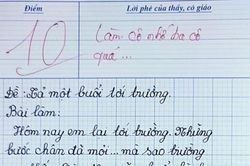 Điểm
Lời phê của thầy, cô giáo
10
Làm cô nhớ ba cô
quá ...
Đề: Tả một buổi tới trường.
Bài làm:
Hôm nay em lại tới trường. Những
bước chân đã mỏi... mà sao trường